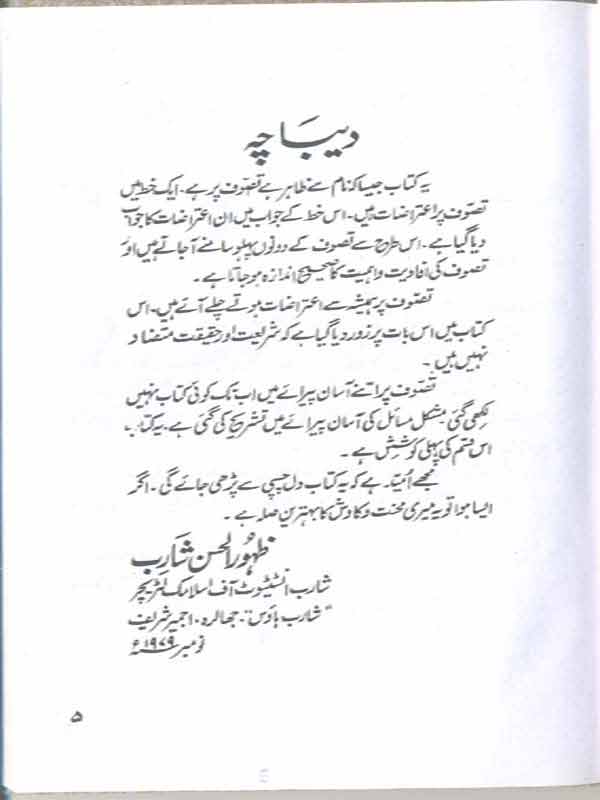 دیباچہ
یہ کتاب جیسا کہ نام سے ظاہر ہے تصوّف پر ہے۔ ایک خط میں
تصوّف پر اعتراضات ہیں۔ اس خط کے جواب میں ان اعتراضات کا جواب
دیا گیا ہے۔ اس طرح سے تصوف کے دونوں پہلو سامنے آ جاتے ہیں اور
تصوف کی افادیت و اہمیت کا صحیح اندازہ ہو جاتا ہے۔
تصوّف پر ہمیشہ سے اعتراضات ہوتے چلے آئے ہیں۔ اس
کتاب میں اس بات پر زور دیا گیا ہے کہ شریعت اور حقیقت متضاد
نہیں ہیں۔
تصوّف پر اتنے آسان پیرائے میں اب تک کوئی کتاب نہیں
لکھی گئی۔ مشکل مسائل کی آسان پیرائے میں تشریح کی گئی ہے۔ یہ کتاب
اس قسم کی پہلی کوشش ہے۔
مجھے اُمید ہے کہ یہ کتاب دل چسپی سے پڑھی جائے گی۔ اگر
ایسا ہوا تو یہ میری محنت و کاوش کا بہترین صلہ ہے۔
ظہورُ الحسن شارب
شارب انسٹیٹیوٹ آف اسلامک لٹریچر
"شارب ہاؤس"۔ جھالرہ۔ اجمیر شریف
نومبر ۱۹۷۹ء
۵